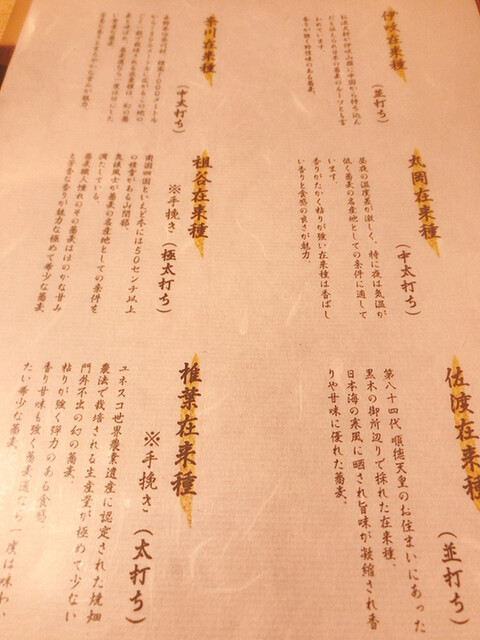 伊吹在来種
(並打ち)
われています。
香りが強く野性味のある蕎麦
丸岡在来種
(中太打ち)
昼夜の温度差が激しく、特に夜は気温が
低く蕎麦の名産地としての条件に適して
います。
香りがたかく粘りが強い在来種は香ばし
い香りと食感の良さが魅力。
佐渡在来種
(並打ち)
第八十四代 順徳天皇のお住まいにあった
黒木の御所辺りで採れた在来種。
日本海の寒風に晒され旨味が凝縮され香
りや甘味に優れた蕎麦。
奈川在来種
(中太打ち)
祖谷在来種
※手挽き(極太打ち)
南国四国といえど冬には50センチ以上
の積雪がある山間部、
気候風土が蕎麦の名産地としての条件を
満たしている。
蕎麦職人憧れのその蕎麦はほのかな甘み
と芳香な香りが魅力な極めて希少な蕎麦
椎葉在来種
※手挽き(太打ち)
ユネスコ世界農業遺産に認定された焼畑
農法で栽培される生産量が極めて少ない
門外不出の幻の蕎麦。
粘りが強く弾力のある食感、
香り甘味も強く蕎麦通なら一度は味わ
たい希少な蕎麦。